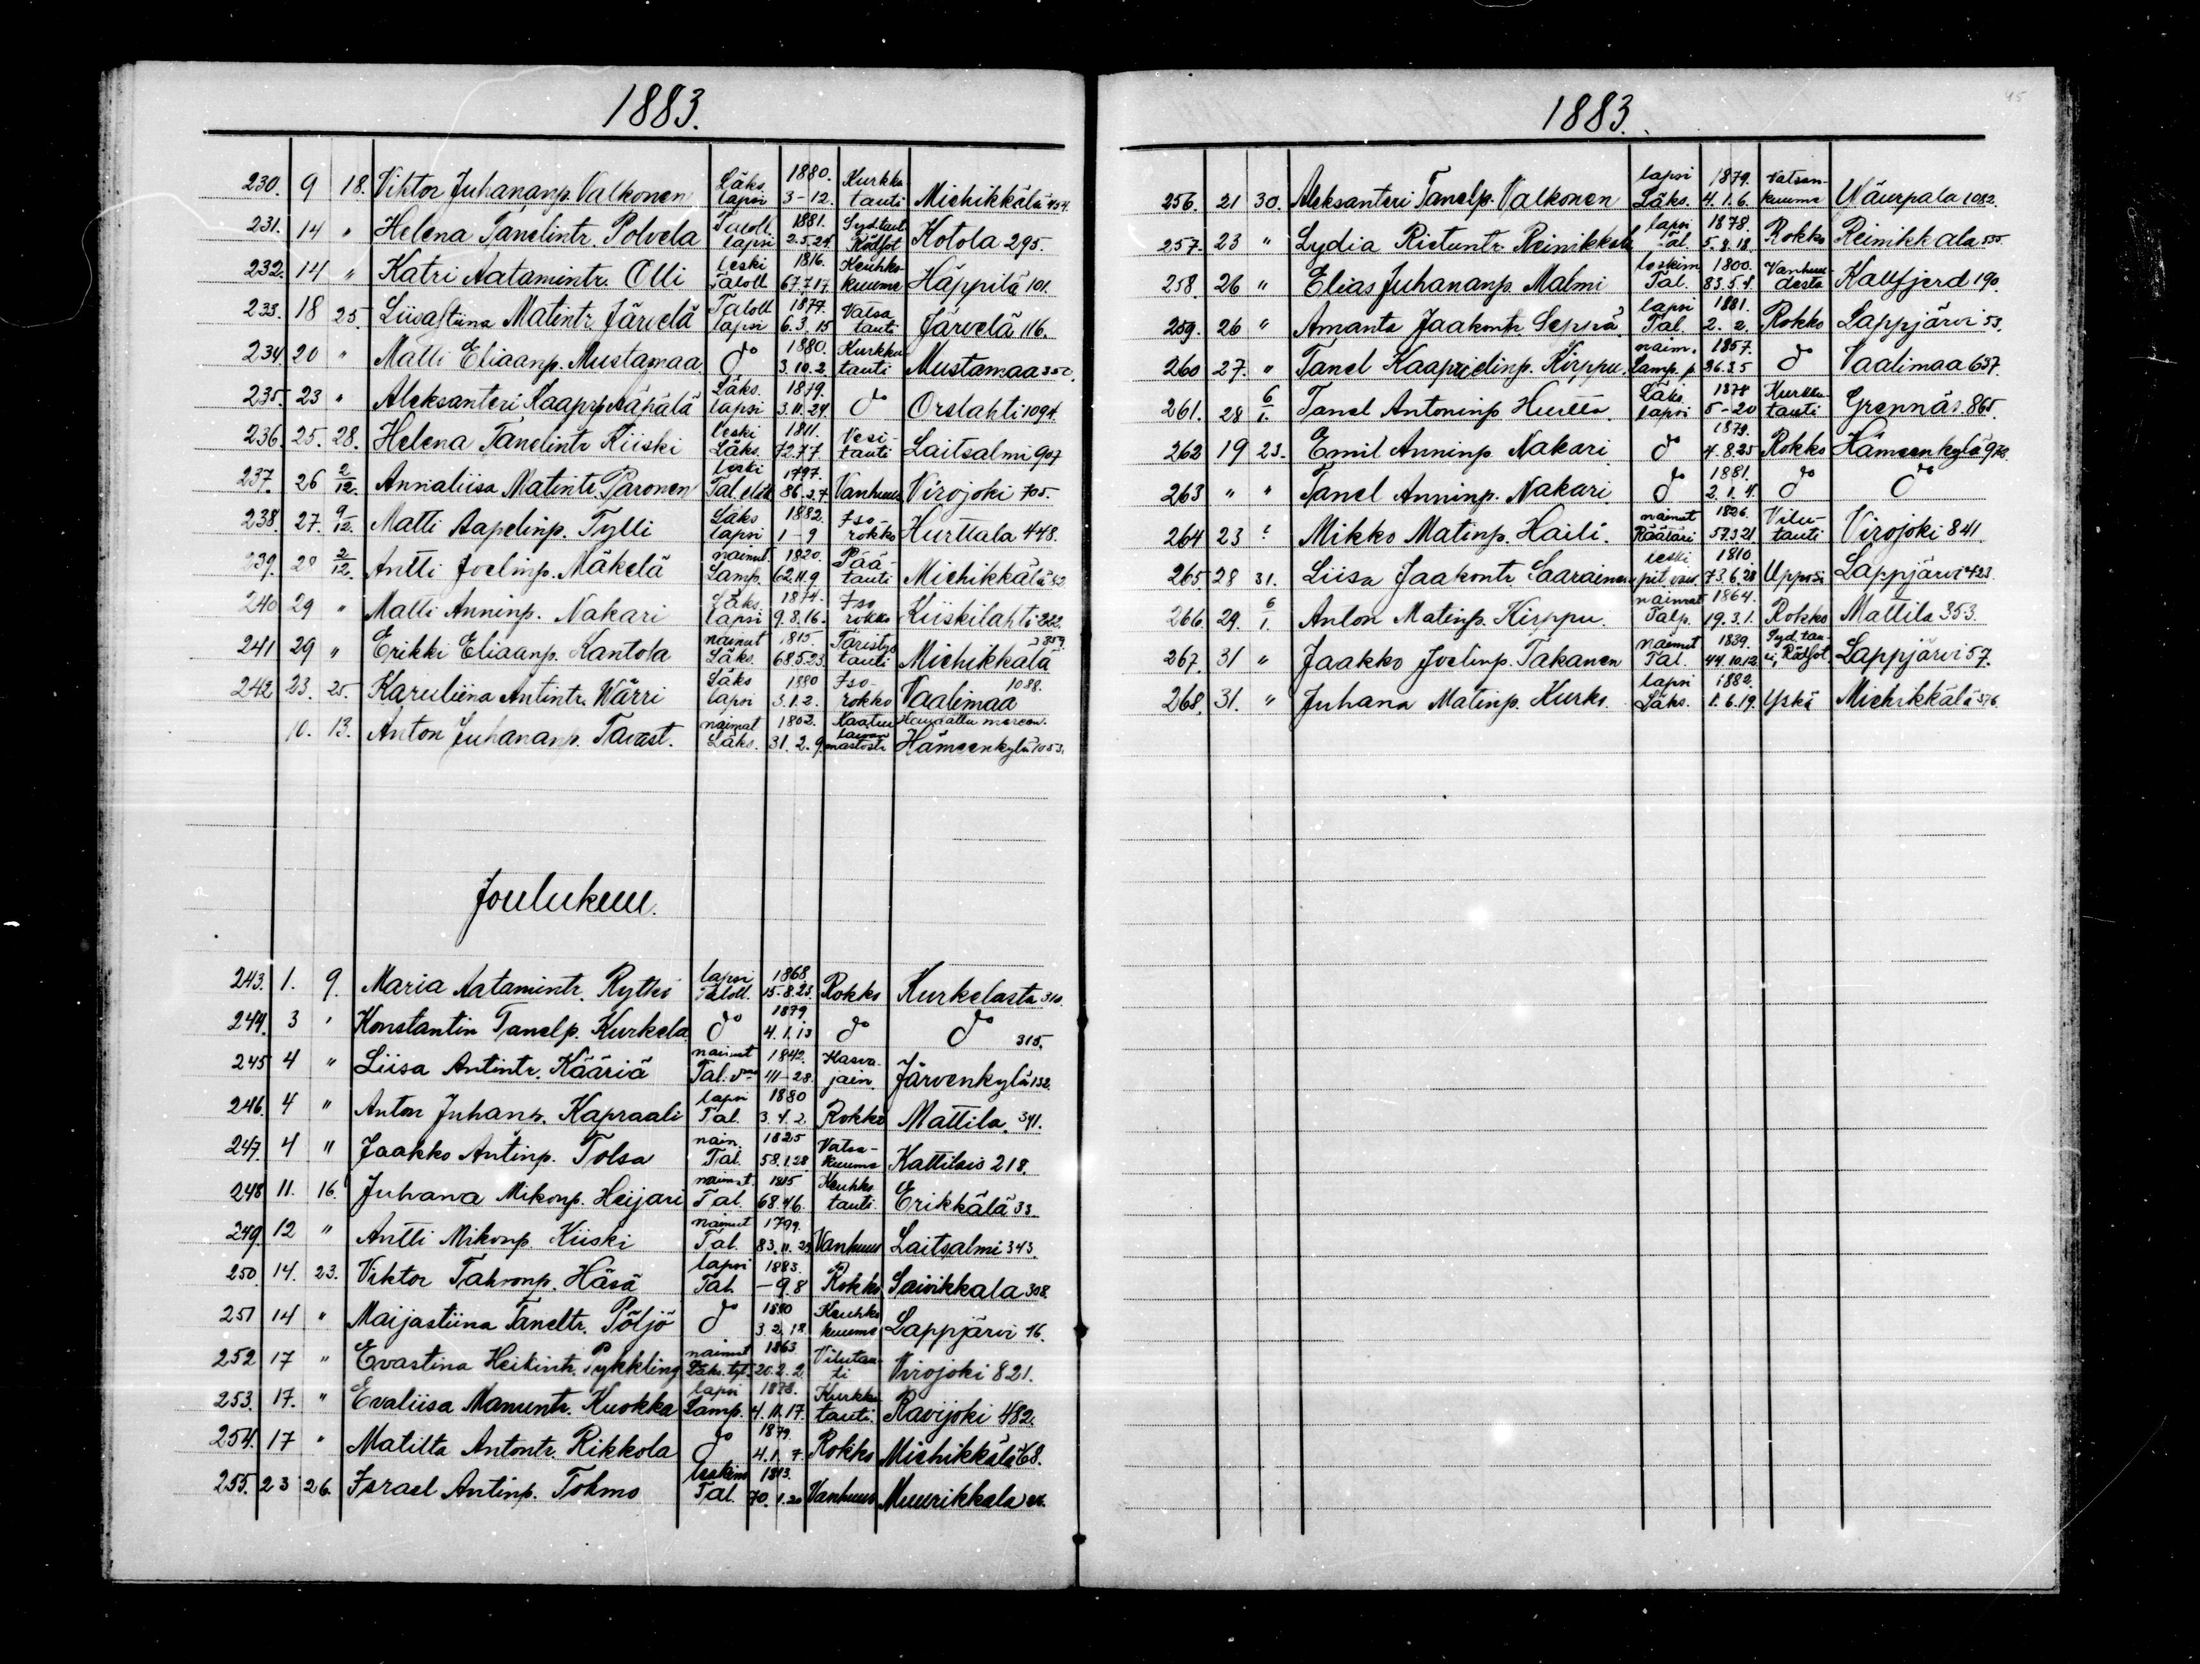 1883.
230. 9 18. Vihtor Juhananp. Valkonen Läks. lapsi 1880. 3-12. Kurkku tauti Miehikkälä 454.
231. 14 " Helena Tanelintr. Polvela Taloll. lapsi 1881. 2.5.24 Syd.taut. Rödsot Kotola 295.
232. 14 " Katri Aatamintr. Olli leski Taloll. 1816. 67.7.17. Keuhko kuume Häppilä 101.
233. 18 25. Liisastiina Matintr. Järvelä Taloll. lapsi 1877. 6.3.15 Vatsa tauti Järvelä 116.
234. 20 " Matti Eliaanp. Mustamaa do 1880. 3.10.2. Kurkku tauti Mustamaa 350.
235. 23 " Aleksanteri Kaaprp. Läks. lapsi 1879. 3.11.24 do Orslahti 1094.
236. 25. 28. Helena Tanelintr Kiiski leski Läks. 1811. 72.7.7 Vesi-tauti Laitsalmi 907
237. 26 2/12. Annaliisa Matintr. Paronen leski Tal. 1797. 86.2.7 Vanhuus Virojoki 705.
238. 27. 9/12. Matti Aapelinp. Tylli Läks lapsi 1882. 1-9 Iso rokko Hurttala 448.
239. 28 2/12. Antti Joelinp. Mäkelä nainut Lamp. 1820. 62.11.9 Pää-tauti Miehikkälä 82.
240 29 " Matti Anninp. Nakari Läks. lapsi 1874. 9.8.16. Iso rokko Kiiskilahti 222.
241 29 " Erikki Eliaanp. Kantola nainut Läks. 1815 68.5.23. Täristys tauti Miehikkälä 359.
242 23. 25. Karuliina Antintr. Wärri Läks lapsi 1880 3.1.2. Iso-rokko Vaalimaa 1088.
10. 13. Anton Juhananp. Tavast. nainut Läks. 1802. 31.2.9. Kaatui laivan mastosta Haudattu mereen. Hämeenkylä 1053.
Joulukuu.
243. 1. 9. Maria Aatamintr. Ryttei lapsi Taloll. 1868 15.8.23. Rokko Kurkelasta 310.
244. 3 " Konstantin Tanelp. Kurkela do 1879 4.1.13 do do 315.
245 4 " Liisa Antintr. Kääriä nainut Tal. 1842. 41-28. Kasva jain. Järvenkylä 132.
246. 4 " Anton Juhanp. Kapraali lapsi Tal. 1880 3.4.2. Rokko Mattila. 341.
247. 4 " Jaakko Antinp. Tolsa nain. Tal. 1825 58.1.28. Vatsa-kuume Kattilais 218.
248 11. 16. Juhana Mikonp. Heijari nainut. Tal. 1815 68.4.6. Keuhko tauti Erikkälä 33.
249. 12 " Antti Mikonp. Kiiski nainut Tal. 1799. 83.11.29 Vanhuus Laitsalmi 343.
250 14. 23. Viktor Tahvonp. Häsä lapsi Tal. 1883. -9.8 Rokko Saivikkala 308.
251 14 " Maijastiina Taneltr. Pöljö do 1880 3.2.18. Keuhko kuume Lappjärvi 16.
252 17 " Evastina Heikintr. Pykkling nainut Läks. tyt. 1863 20.2.2. Vilutau-ti Virojoki 821.
253. 17. " Evaliisa Manuntr. Kuokka lapsi Lamp. 1878. 4.11.17. Kurkku tauti. Ravijoki 482.
254. 17 " Matilta Antontr. Rikkola do 1879. 4.1.7. Rokko Miehikkälä 68.
255. 23 26. Israel Antinp. Tohmo leskim Tal. 1813. 70.1.20 Vanhuus Muurikkala
1883.
45
256. 21 30. Aleksanteri Tanelp. Valkonen lapsi Läks. 1879. 4.1.6. Vatsan-kuume Wäurpala 1082.
257. 23 " Lydia Rietuntr. Reinikkala lapsi Tal 1878. 5.8.18 Rokko Reinikkala 555.
258. 26 " Elias Juhananp. Malmi leskim Tal. 1800. 83.5.8 Vanhuu-desta Kallfjerd 190.
259. 26 " Amanta Jaakontr. Seppä lapsi Tal. 1881. 2.2. Rokko Lappjärvi 53.
260 27. " Tanel Kaaprielinp. Kirppu. naim. Lamp.p 1857. 26.3.5 do Vaalimaa 637.
261. 28 6/1. Tanel Antoninp. Hurtta. Läks. lapsi 1878 5-20 Kurkku-tauti Grennäs. 865.
262 19 23. Emil Anninp Nakari. do 1879. 4.8.25 Rokko Hämeenkylä 970.
263 " " Tanel Anninp. Nakari do 1881. 2.1.4. do do
264 23 " Mikko Matinp. Haili. nainut Räätäri 1826. 57.3.21 Vilu-tauti Virojoki 841.
265 28 31. Liisa Jaakontr Saarainen leski pit.vaiv. 1810 73.6.28 Upposi Lappjärvi 423.
266. 29. 6/1. Anton Matinp. Kirppu. nainut Talp. 1864. 19.3.1. Rokko Mattila 353.
267. 31 " Jaakko Joelinp. Takanen nainut Tal. 1839. 44.10.12 Syd. tau-ti, Rödsot Lappjärvi 57.
268. 31. " Juhana Matinp. Kurko. lapsi Läks. 1882. 1.6.19. Yskä Miehikkälä 376.